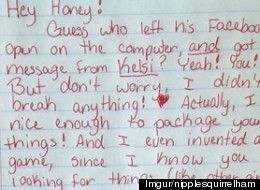 Hey Honey!
Guess who left his Facebook
open on the computer, and got
message from Kelsi? Yeah! You!
But don't worry, I didn't
break anything! ♥ Actually, I
nice enough to package your
things! And I even invented a
game, since I know you
looking for things (like other
Imgur/nipplesquirrelham